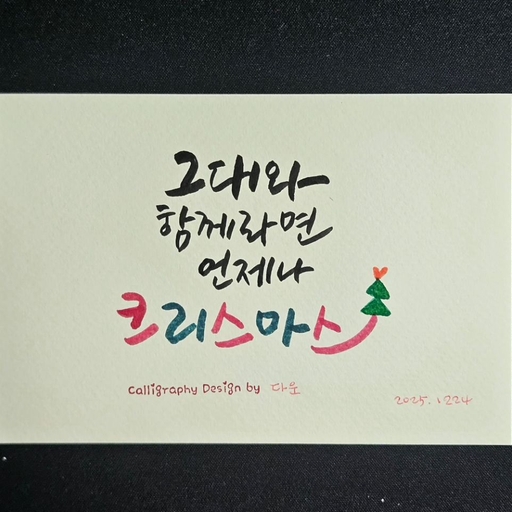 그대와
함께라면
언제나
크리스마스
Calligraphy Design by 다운
2025. 1224